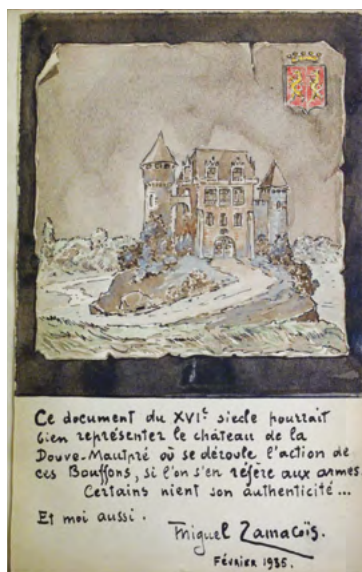 Ce document du XVIᵉ siecle pourrait
bien représenter le château de la
Douve-Mautpré où se déroule l'action de
ces Bouffons, si l'on s'en réfère aux armes
Certains nient son authenticité ...
Et moi aussi.
Miguel Zamacoïs.
Février 1935.